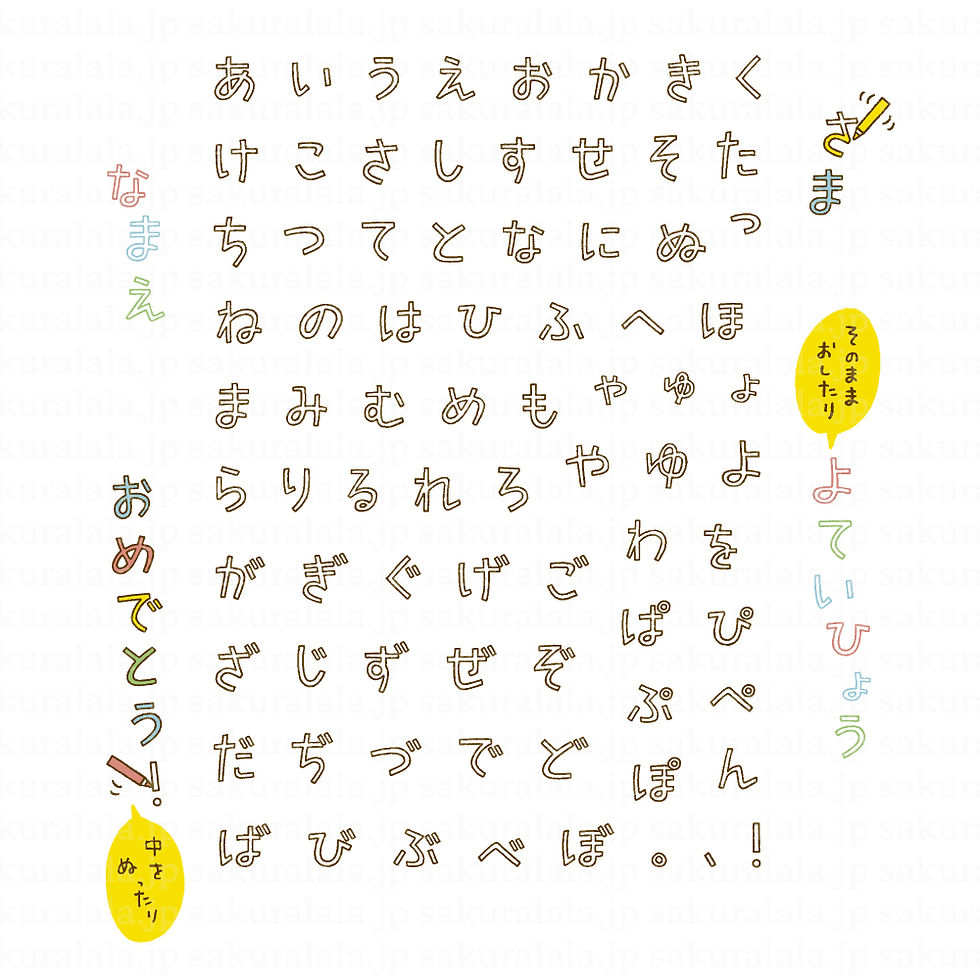 あいうえおかきく
けこさしすせそた
ちつてとなにぬっ
ねのはひふへほ
まみむめもゃゅょ
らりるれろやゆよ
わを
がぎぐげご
ぱぴ
ざじずぜぞ
ぷぺ
だぢづでど
ぽん
ばびぶべぼ。、!
さま
そのまま
おしたり
よていひょう
なまえ
おめでとう!
中を
ぬったり
sakuralala.jp